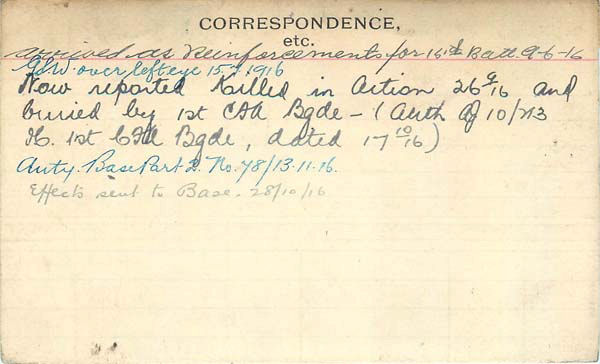 CORRESPONDENCE,
etc.
arrived as Reinforcements for 15th Batt. 9-6-16
GSW. over left eye 15.7.1916
Now reported Killed in Action 26 9/16 and
buried by 1st CFA Bgde - (Auth Of 10/213
H. 1st CFA Bgde, dated 17 10/16)
Auty. Base Part 2. No. 78/13.11.16.
Effects sent to Base. 28/10/16